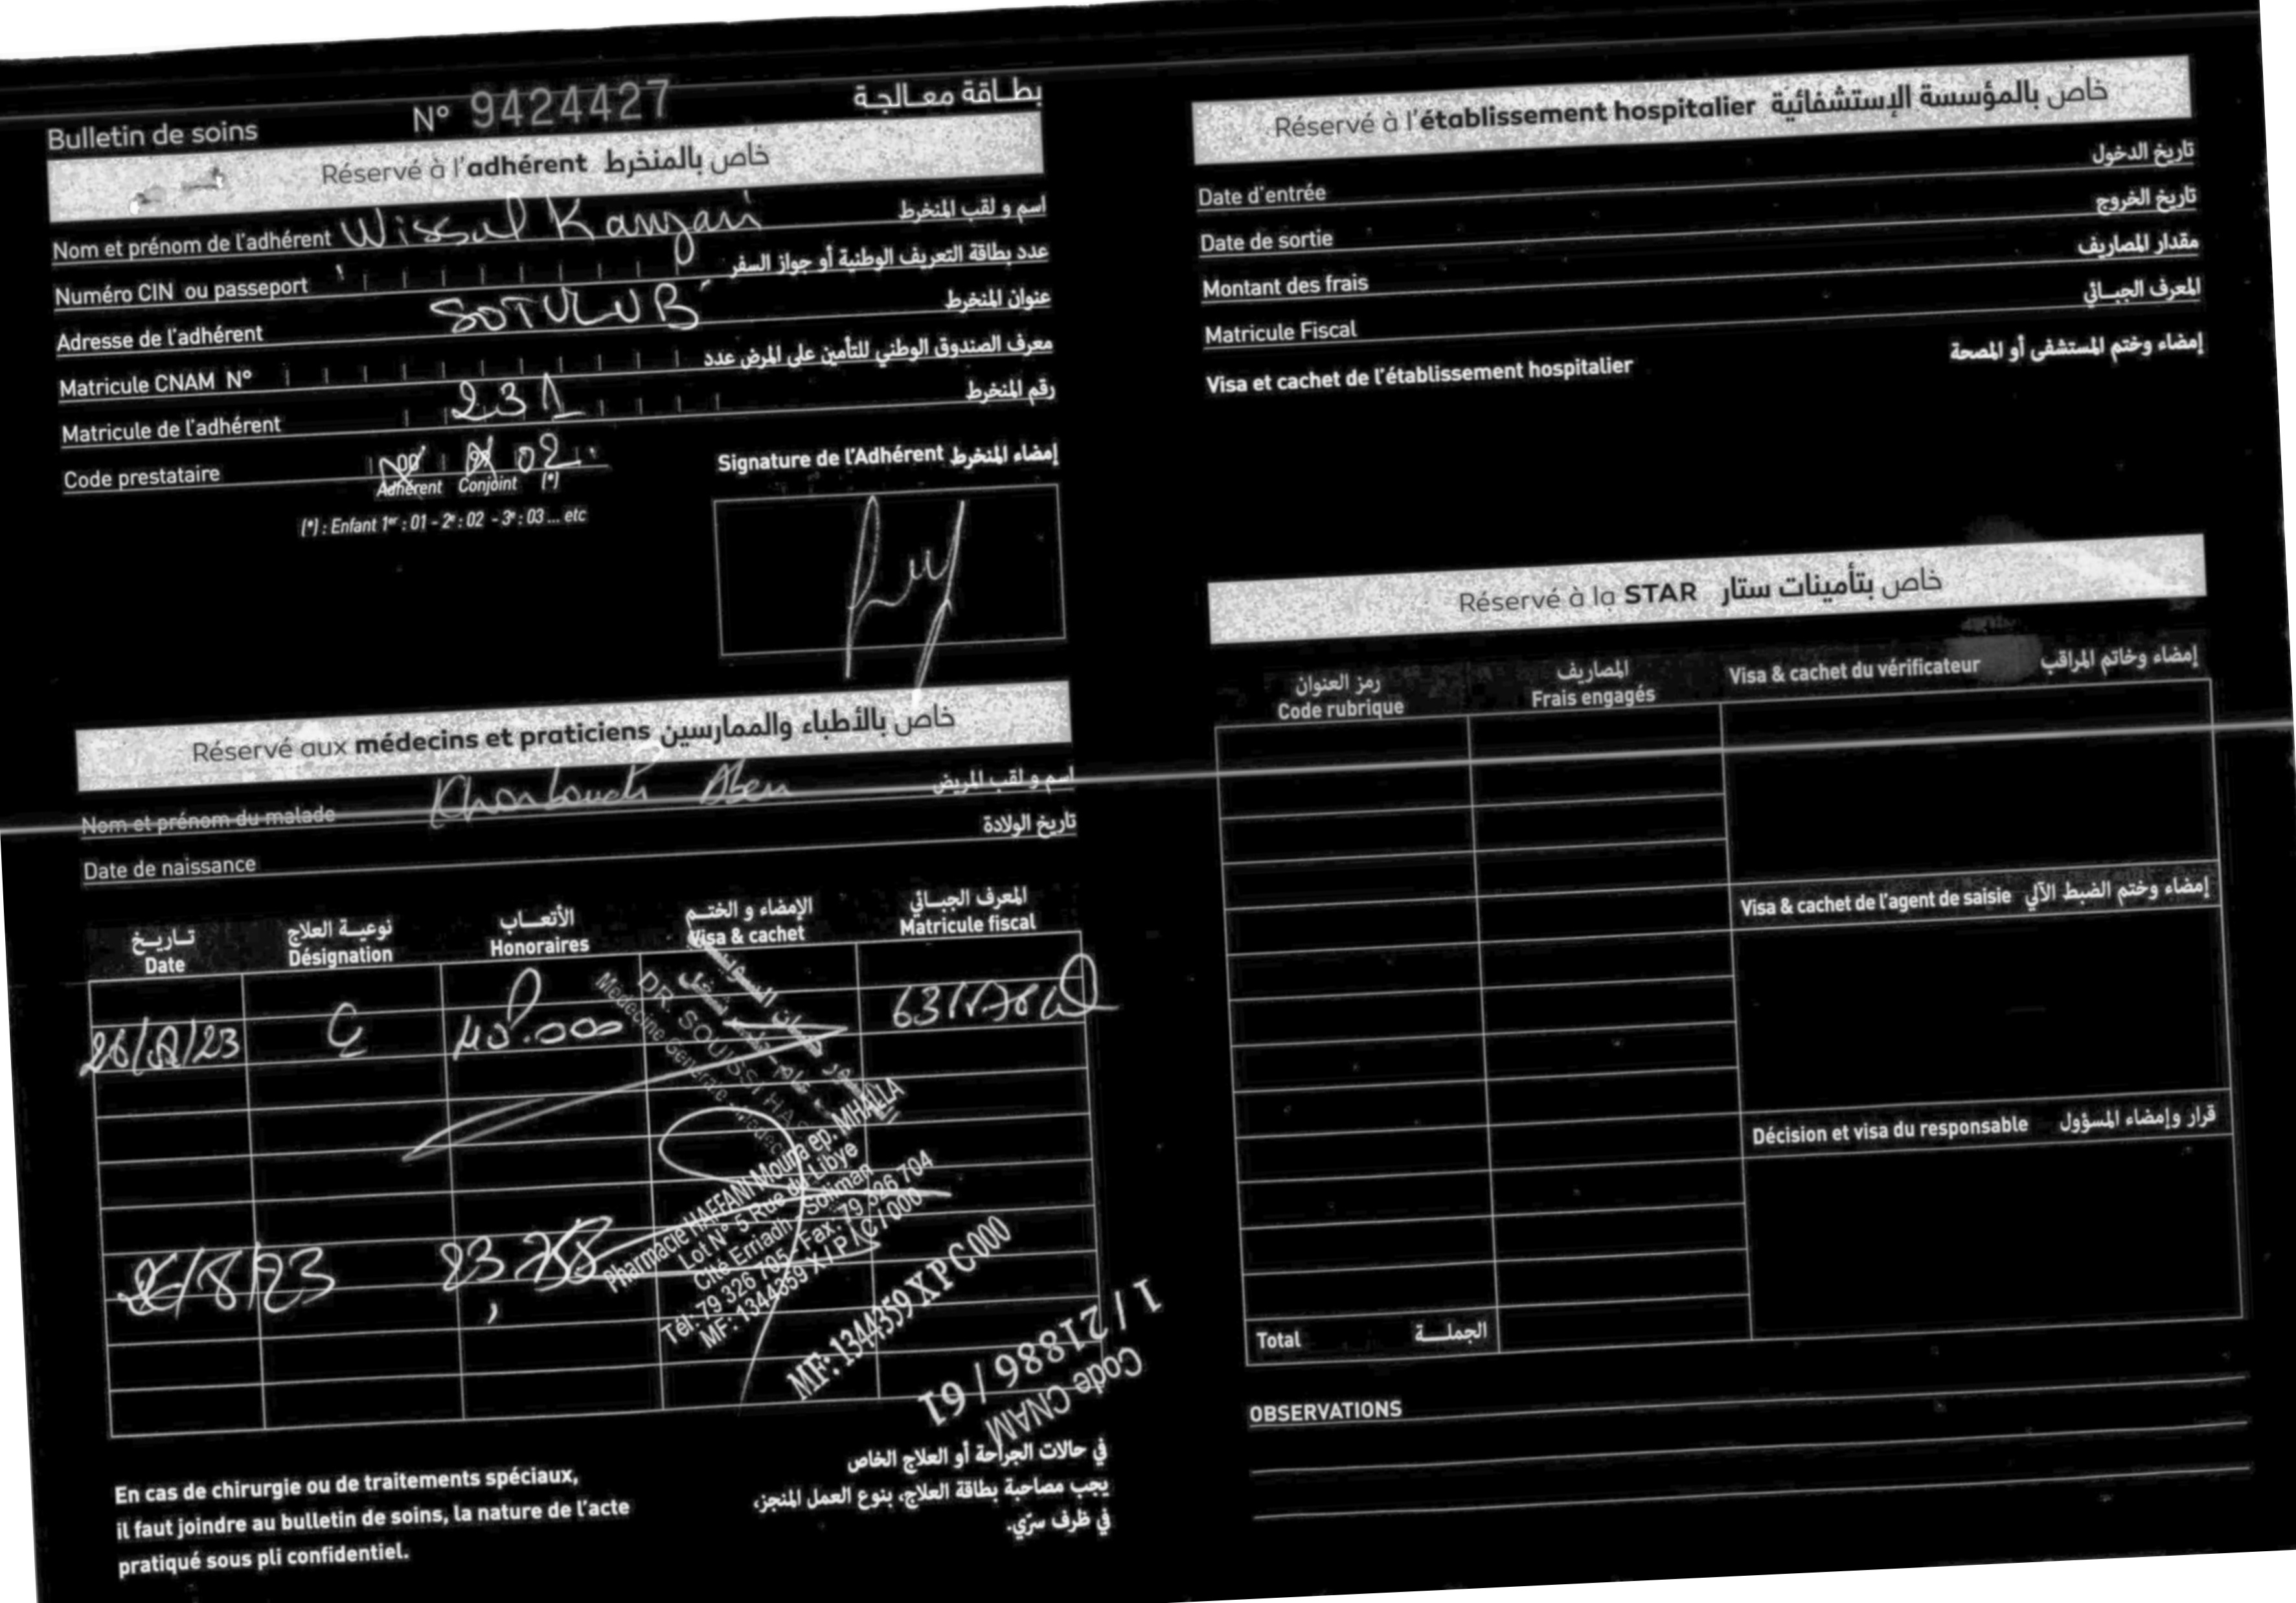 Bulletin de soins N° 9424427 بطاقة معالجة
Réservé à l'adhérent خاص بالمنخرط
Nom et prénom de l'adhérent Wissal Kanzari اسم و لقب المنخرط
Numéro CIN ou passeport عدد بطاقة التعريف الوطنية أو جواز السفر
Adresse de l'adhérent SOTULUB عنوان المنخرط
Matricule CNAM N° معرف الصندوق الوطني للتأمين على المرض عدد
Matricule de l'adhérent 231 رقم المنخرط
Code prestataire 02
Adhérent Conjoint (*)
(*) : Enfant 1er : 01 - 2e : 02 - 3e : 03 ... etc
Signature de l'Adhérent إمضاء المنخرط
Réservé aux médecins et praticiens خاص بالأطباء والممارسين
Nom et prénom du malade اسم و لقب المريض
Date de naissance تاريخ الولادة
تاريخ نوعية العلاج الأتعاب الإمضاء و الختم المعرف الجبائي
Date Désignation Honoraires Visa & cachet Matricule fiscal
C
DR. SOUISSI
Médecine Générale
26/8/23
Pharmacie HAFFANI Mouna ep. MHALLA
Lot N° 5 Rue du Libye
Cité Erriadh - Soliman
Tél: 79 326 705 - Fax: 79 326 704
MF: 1344359 X / P / C / 000
MF: 1344359 X P C 000
1 / 21886 / 61
Code CNAM
En cas de chirurgie ou de traitements spéciaux,
il faut joindre au bulletin de soins, la nature de l'acte
pratiqué sous pli confidentiel.
في حالات الجراحة أو العلاج الخاص
يجب مصاحبة بطاقة العلاج، بنوع العمل المنجز،
في ظرف سرّي.
Réservé à l'établissement hospitalier خاص بالمؤسسة الإستشفائية
Date d'entrée تاريخ الدخول
Date de sortie تاريخ الخروج
Montant des frais مقدار المصاريف
Matricule Fiscal المعرف الجبائي
Visa et cachet de l'établissement hospitalier إمضاء وختم المستشفى أو المصحة
Réservé à la STAR خاص بتأمينات ستار
رمز العنوان المصاريف
Code rubrique Frais engagés Visa & cachet du vérificateur إمضاء وخاتم المراقب
Visa & cachet de l'agent de saisie إمضاء وختم الضبط الآلي
Décision et visa du responsable قرار وإمضاء المسؤول
Total الجملة
OBSERVATIONS